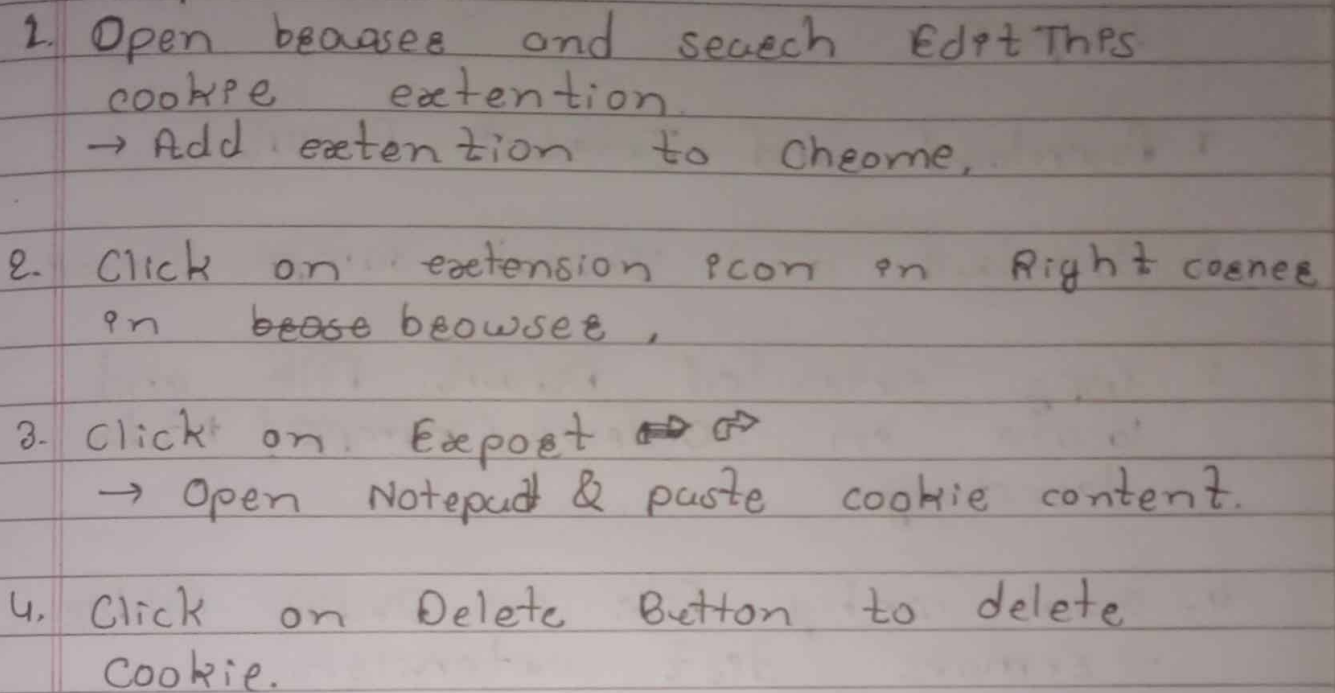 1. Open broaser and search EditThis
cookie extention.
→ Add extention to Chrome,
2. Click on extension icon in Right corner
in browser,
3. Click on Export
→ Open Notepad & paste cookie content.
4. Click on Delete Button to delete
Cookie.